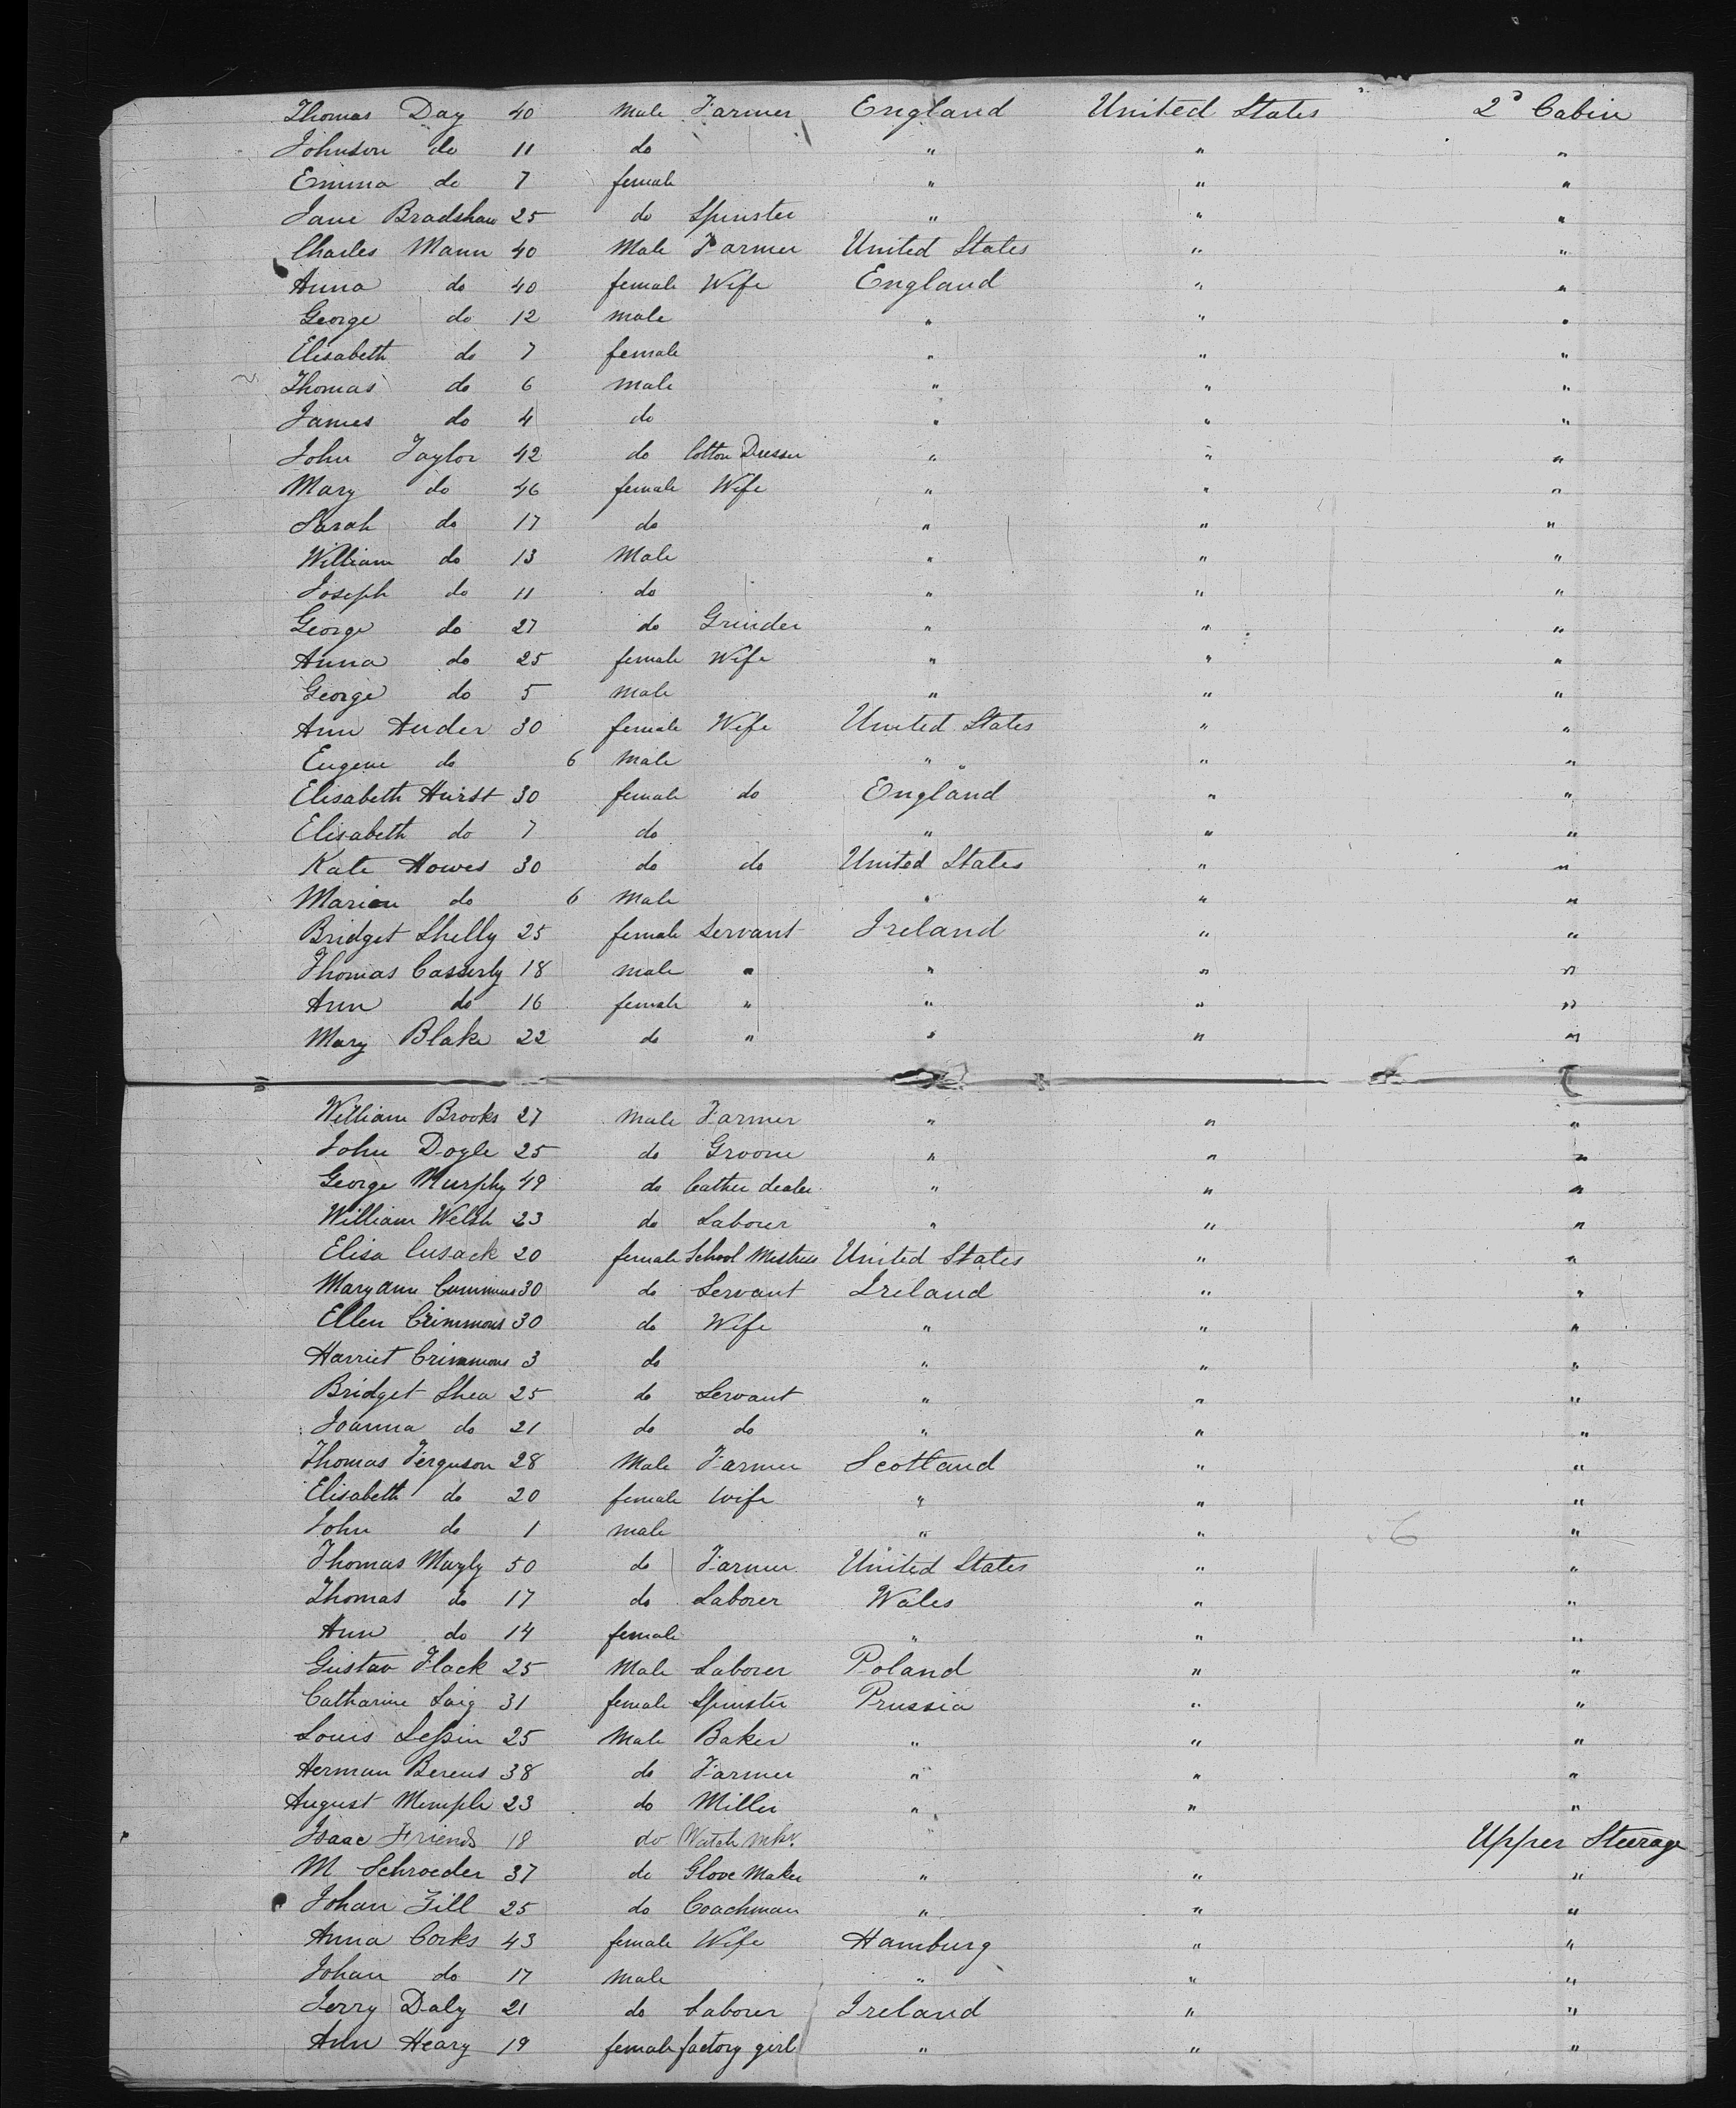 Thomas Day 40 Male Farmer England United States 2d Cabin
Johnson do 11 do " " "
Emma do 7 female " " "
Jane Bradshaw 25 do Spinster " " "
Charles Mann 40 Male Farmer United States " "
Anna do 40 female Wife England " "
George do 12 male " " "
Elisabeth do 7 female " " "
Thomas do 6 male " " "
James do 4 do " " "
John Taylor 42 do Cotton Dresser " " "
Mary do 46 female Wife " " "
Sarah do 17 do " " "
William do 13 Male " " "
Joseph do 11 do " " "
George do 27 do Grinder " " "
Anna do 25 female Wife " " "
George do 5 male " " "
Ann Ander 30 female Wife United States " "
Eugene do 6 Male " " " "
Elisabeth Hurst 30 female do England " "
Elisabeth do 7 do " " "
Kate Howes 30 do do United States " "
Marion do 6 Male " " "
Bridget Shelly 25 female Servant Ireland " "
Thomas Casserly 18 male " " " "
Ann do 16 female " " " "
Mary Blake 22 do " " " "
William Brooks 27 Male Farmer " " "
John Doyle 25 do Groom " " "
George Murphy 49 do leather dealer " " "
William Welsh 23 do Laborer " " "
Elisa Cusack 20 female School Mistress United States " "
Mary Ann Cummins 30 do Servant Ireland " "
Ellen Crimmons 30 do Wife " " "
Harriet Crimmons 3 do " " "
Bridget Shea 25 do Servant " " "
Joanna do 21 do do " " "
Thomas Ferguson 28 Male Farmer Scotland " "
Elisabeth do 20 female wife " " "
John do 1 male " " "
Thomas 50 do Farmer United States " "
Thomas do 17 do Laborer Wales " "
Ann do 14 female " " "
Gustav Flack 25 Male Laborer Poland " "
Catharine 31 female Spinster Prussia " "
Louis Leßin 25 Male Baker " " "
Herman Berens 38 do Farmer " " "
August Memple 23 do Miller " " "
Isaac Friends 18 do Watch mkr. Upper Steerage
M Schroeder 37 do Glove Maker " " "
Johan Fill 25 do Coachman " " "
Anna Corks 43 female Wife Hamburg " "
Johan do 17 male " " "
Jerry Daly 21 do Laborer Ireland " "
Ann Heary 19 female factory girl " " "